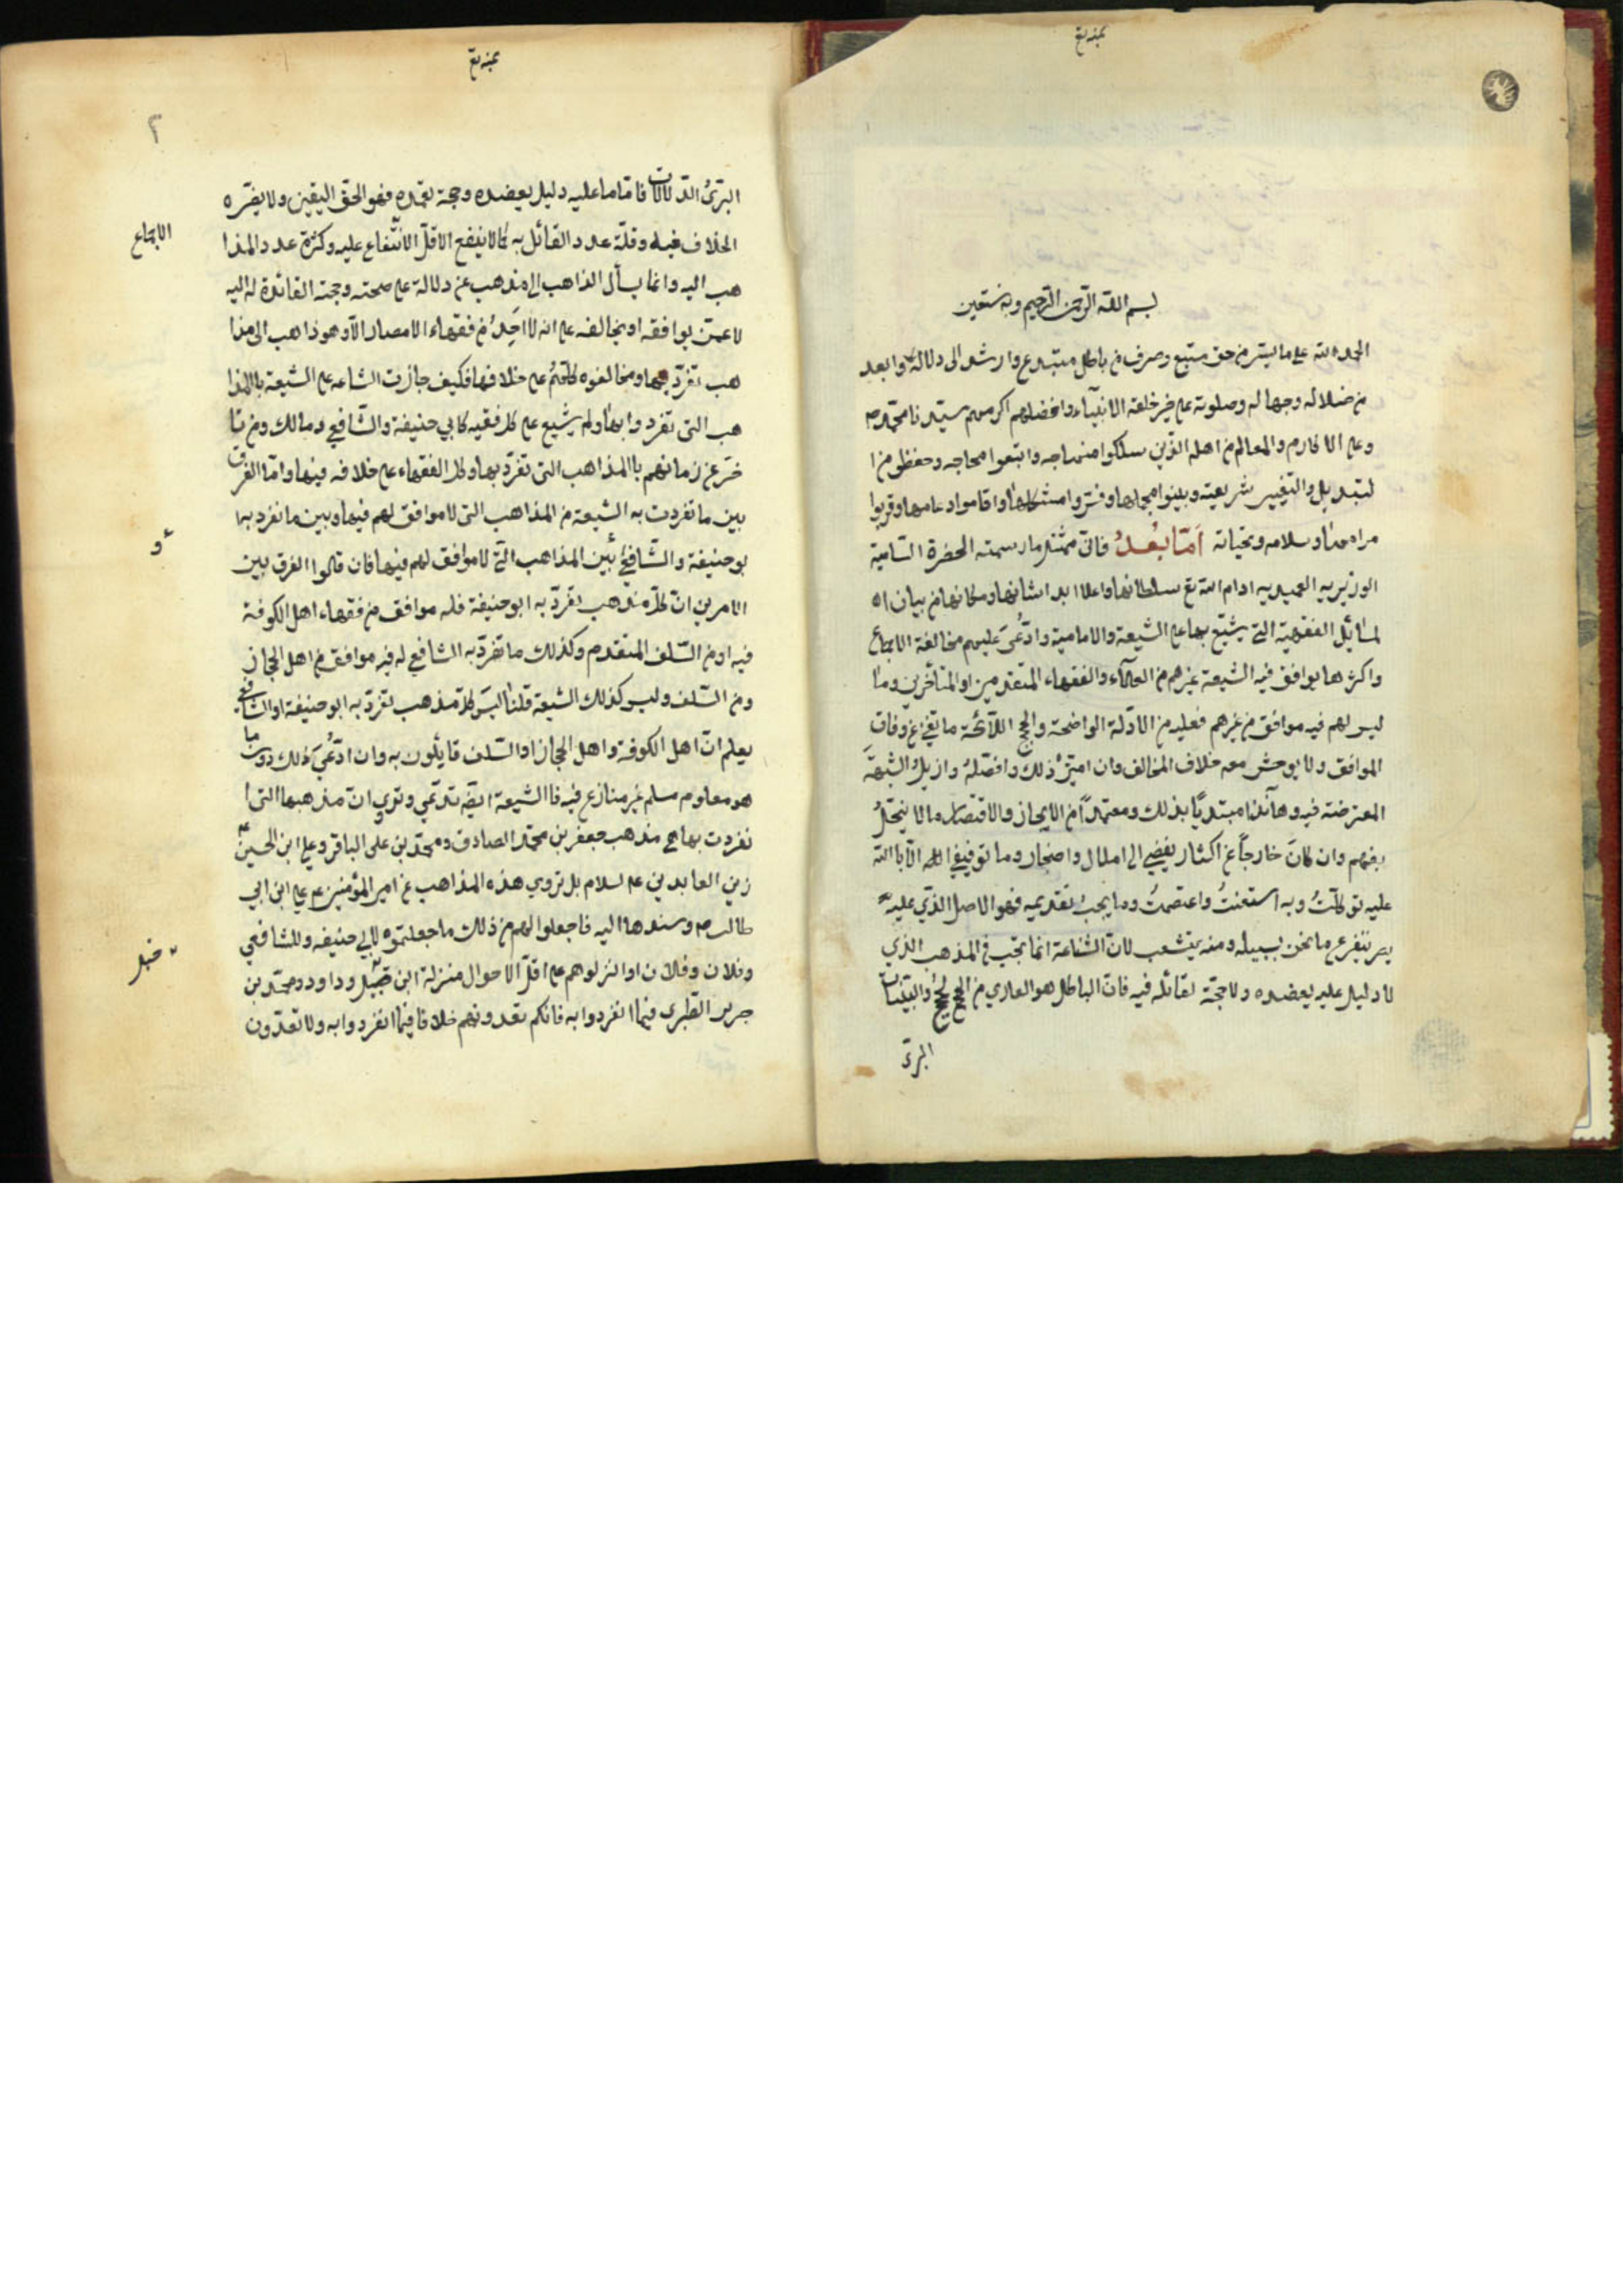 بسم الله الرحمن الرحيم وبه نستعين
الحمد لله على ما يسّر من حق متبع وصرف من باطل مبتدع وارشد الى دلاله وابعد
من ضلاله وجهاله وصلوته على خير خلقه الانبياء وافضلهم اكرمهم سيّدنا محمّد ص
وعلى الاكارم والمعالم من اهله الذّين سلكوا منهاجه واتبعوا محاجه وحفظو من ا
لتبديل والتغيير شريعته وبينوا مجملها وفسّروا مشكلها واقاموا دعامها وقربوا
مرامها وسلامه وتحياته اَمّا بَعْدُ فانى ممتثل ما رسمته الحضرة السّامية
الوزيريه العميديه ادام الله تع سلطانها واعلا ابدا شانها ومكانها من بيان ا
لمسائل الفقهية التى يشنّع بها على الشيعة والامامية وادُّعىَ عليهم مخالفة الاجماع
واكثرها يوافق فيه الشيعة غيرهم من العلماء والفقهاء المتقدمين او المتأخرين وما
ليس لهم فيه موافق من غيرهم فعليه من الادّلة الواضحة والحجج اللّائحة ما يغنى عن وفاق
الموافق ولا يوحش معه خلاف المخالف وان ابيّنَ ذلك وافصّلهُ وازيلُ الشبهَة
المعترضة فيه وها أنذا مبتديًا بذلك ومعتمدًا من الايجاز والاقتصار ما لا يخلُّ
بفهم وان كانَ خارجاً عن اكثار يفضي الى املال واضجار وما توفيقى الا بالله
عليه توكلتُ وبه استعنتُ واعتصمتُ وما يجبُ تقديمه فهو الاصل الذّي عليه
يتفرع ما نحن بسبيله ومنه يتشعب لان الشناعة انما تجب فى المذهب الذي
لا دليل عليه يعضده ولا حجّة لقائله فيه فان الباطل هو العاري من الحجج والبيّنات
البرئ
البرىُٔ الدّلالات فامّا ما عليه دليل يعضده وحجة تعمده فهو الحق اليقين ولا يضرّه
الخلاف فيه وقلّة عدد القائل به كما لا ينفع الاقلّ الانتفاع عليه وكثرة عدد المذا
الاجماع
هب اليه وانما يسأل الذاهب الى مذهب عن دلالة على صحته وحجته القائدة له اليه
لا عمّن يوافقه او يخالفه على انه لا احدٌ من فقهاء الامصار الّا وهو ذاهب الى مذا
هب تفرّد بها ومخالفوه كلّهمُ على خلافها فكيف جازت الشناعه على الشيعة بالمذا
هب التى تفردوا بها ولم يشنع على كل فقيه كابي حنيفة والشّافعى ومالك ومن تا
خّر عن زمانهم بالمذاهب التى تفرّد بها وكل الفقهاء على خلافه فيها وامّا الفرق
بين ما تفردت به الشيعة من المذاهب التى لا موافق لهم فيها وبين ما تفرد به ا
بوحنيفة والشّافعى بين المذاهب التى لا موافق لهم فيها فان قالوا الفرق بين
الامرين انّ كلّ مذهب تفرّد به ابوحنيفة فله موافق من فقهاء اهل الكوفة
فيه او من السّلف المتقدم وكذلك ما تفرّد به الشافعى له فيه موافق من اهل الحجاز
ومن السّلف وليس كذلك الشيعة قلنا اليسَ كلّ مذهب تفرّد به ابوحنيفة او الشافعى
يعلم انّ اهل الكوفة واهل الحجاز او السّلف قايلون به وان ادّعُىَ ذلك دون ما
هو معلوم مسلم غير منازع فيه فالشيعة ايضًا تدّعي وتروي انّ مذهبها التى ا
نفردت بها هى مذهب جعفر بن محمّد الصادق ومحمّد بن على الباقر وعلى ابن الحسين
زين العابدين عليه السلام بل تروي هذه المذاهب عن امير المؤمنين ع على ابن ابي
طالب ع وسندها اليه فاجعلوا لهم من ذلك ما جعلتموه لابي حنيفه وللشافعي
وفلان وفلان او انزلوهم على اقلّ الاحوال منزلة ابن حنبل وداود ومحمّد بن
حنبل
جرير الطّبرى فيما انفردوا به فانكم تعدونهم خلافا فيما انفردوا به ولا تعدّون